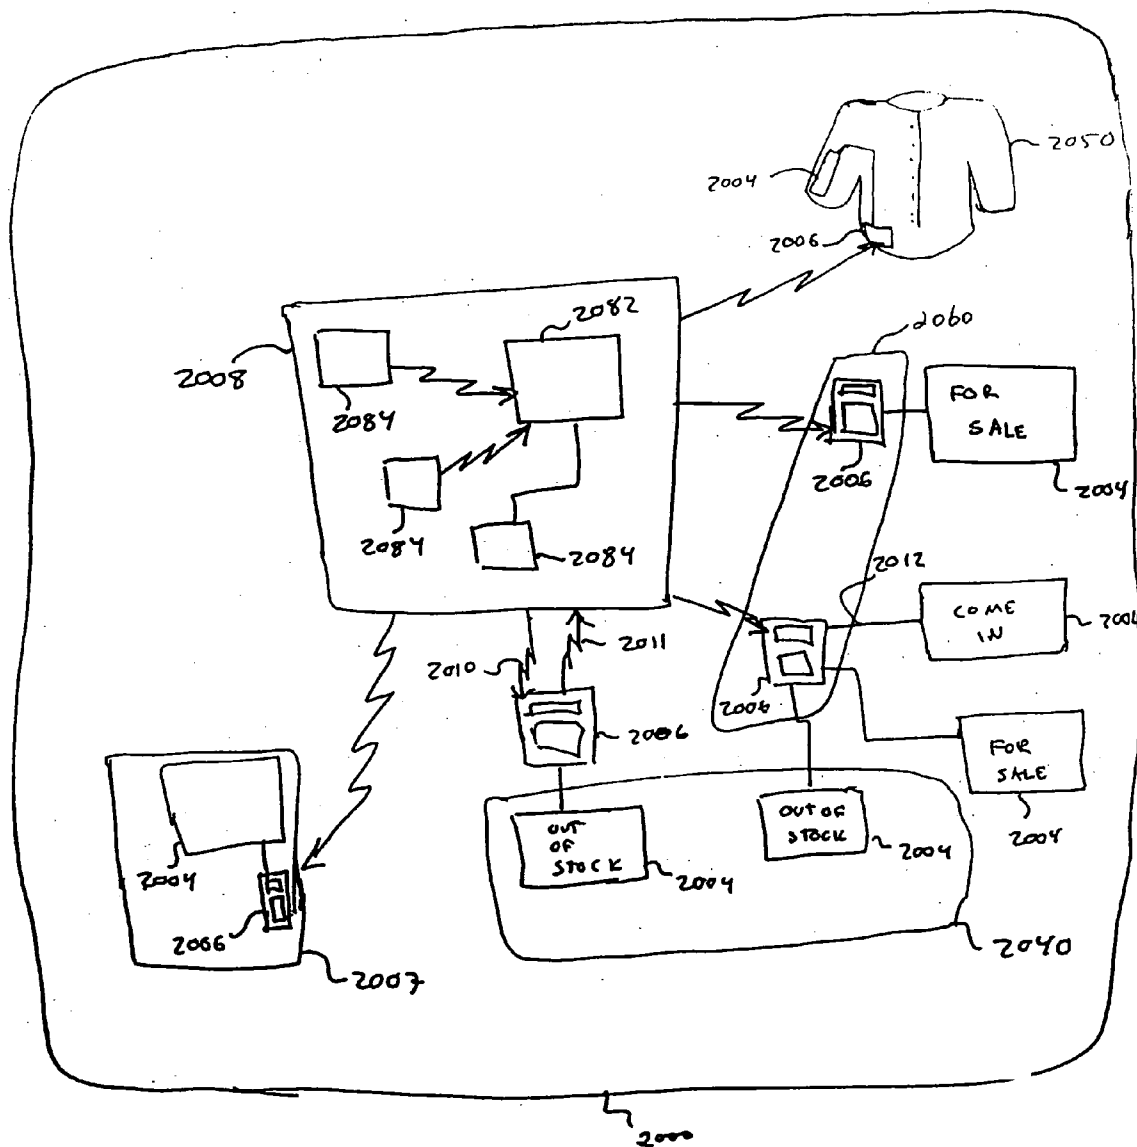 2050
2004
2006
2082
2060
2008
FOR
SALE
2084
2006
2004
2084
2084
2012
COME
IN
2004
2011
2010
2006
2006
FOR
SALE
OUT OF
STOCK
2004
OUT
OF
STOCK
2004
2004
2004
2006
2040
2007
2000